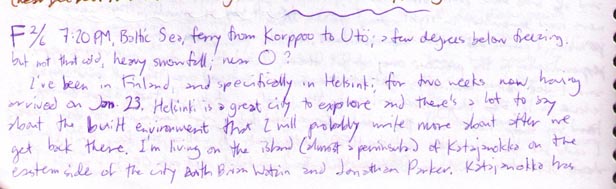 F 2/6 7:20 PM, Baltic Sea, ferry from Korppoo to Utö; a few degrees below freezing.
but not that cold, heavy snowfall; new O ?
I've been in Finland, and specifically in Helsinki, for two weeks now, having
arrived on Jan 23. Helsinki is a great city to explore and there's a lot to say
about the built environment that I will probably write more about after we
get back there. I'm living on the island (almost a peninsula) of Katajanokka on the
eastern side of the city with Brian Watkin and Jonathan Parker. Katajanokka has